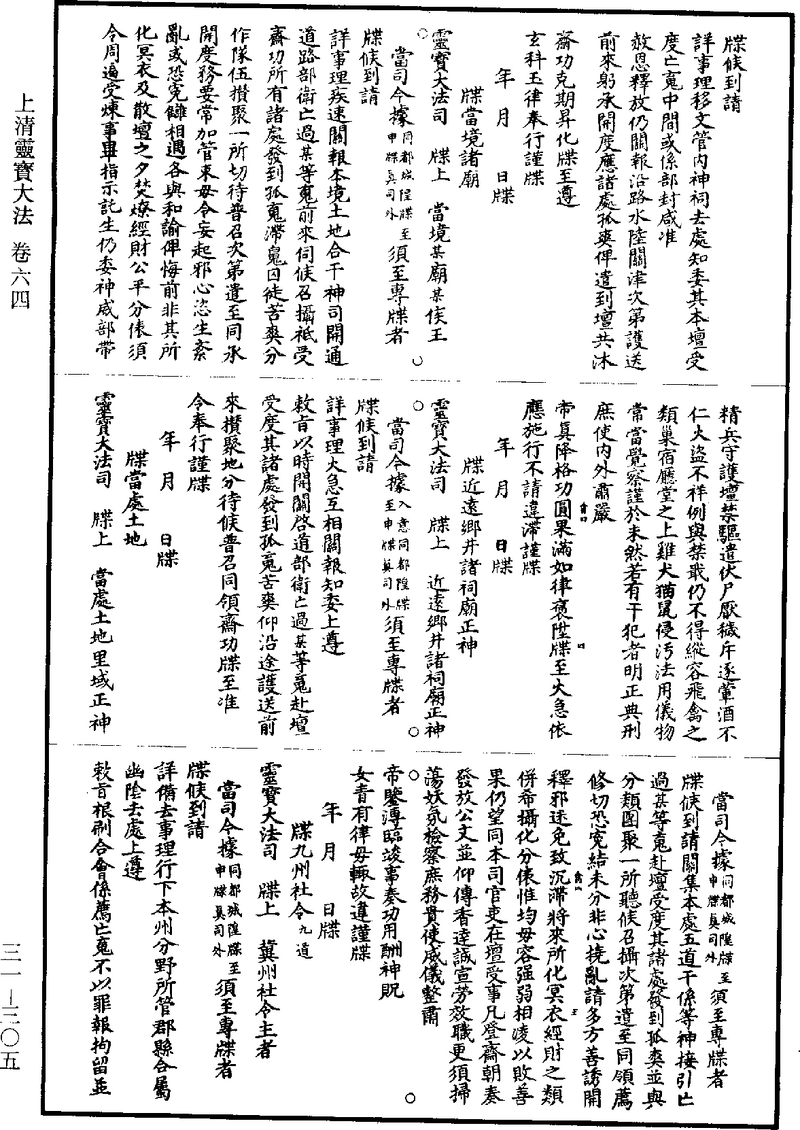 上清靈寶大法 卷六四
牒候到請
詳事理移文管內神祠去處知委其本壇受
度亡䰟中間或係部封咸准
赦恩釋放仍關報沿路水陸關津次第護送
前來躬承開度應諸處孤䰟俾遣到壇共沐
齋功克期昇化牒至遵
玄科玉律奉行謹牒
年 月 日牒
牒當境諸廟
靈寶大法司 牒上 當境某廟某侯王
當司今據同都城隍牒至申牒真司外須至專牒者
牒候到請
詳事理疾速關報本境土地合干神司開通
道路部衛亡過某等䰟前來伺候召攝祗受
齋功所有諸處發到孤䰟滯鬼囚徒苦爽分
作隊伍攢聚一所切待普召次第遣至同承
開度務要常加管束毋令妄起邪心恣生紊
亂或恐冤讎相遇各與和諭俾悔前非其所
化冥衣及散壇之夕焚燎經財公平分俵須
令周遍受煉事畢指示託生仍委神威部帶
精兵守護壇禁驅遣伏尸厭穢斥逐葷酒不
仁火盜不祥例與禁戢仍不得縱容飛禽之
類巢宿廳堂之上雞犬猫鼠侵污法用儀物
常當覺察謹於未然若有干犯者明正典刑
庶使內外肅嚴
帝真降格功圓果滿如律褒陞牒至火急依
應施行不請違滯謹牒
年 月 日牒
牒近遠鄉井諸祠廟正神
靈寶大法司 牒上 近遠鄉井諸祠廟正神
當司今據入意同都城隍牒至申牒真司外須至專牒者
牒候到請
詳事理火急互相關報知委上遵
敕旨以時開關啓道部衛亡過某等䰟赴壇
受度其諸處發到孤䰟苦爽仰沿途護送前
來攢聚地分待候普召同領齋功牒至准
令奉行謹牒
年 月 日牒
牒當處土地
靈寶大法司 牒上 當處土地里域正神
當司今據同都城隍牒至申牒真司外須至專牒者
牒候到請關集本處五道干係等神接引亡
過某等䰟赴壇受度其諸處發到孤爽並與
分類團聚一所聽候召攝次第遣至同領薦
修切恐冤結未分非心撓亂請多方善誘開
釋邪迷免致沉滯將來所化冥衣經財之類
併希攝化分俵惟均毋容强弱相凌以敗善
果仍望同本司官吏在壇受事凡登齋朝奏
發放公文並仰傳香達誠宣勞效職更須掃
蕩妖氛檢察庶務貴使威儀整肅
帝鑒溥臨竣事奏功用酬神貺
女青有律毋輒故違謹牒
年 月 日牒
牒九州社令九道
靈寶大法司 牒上 冀州社令主者
當司今據同都城隍牒至申牒真司外須至專牒者
牒候到請
詳備去事理行下本州分野所管郡縣合屬
幽陰去處上遵
敕旨根刷合會係薦亡䰟不以罪報拘留並
三一—三〇五